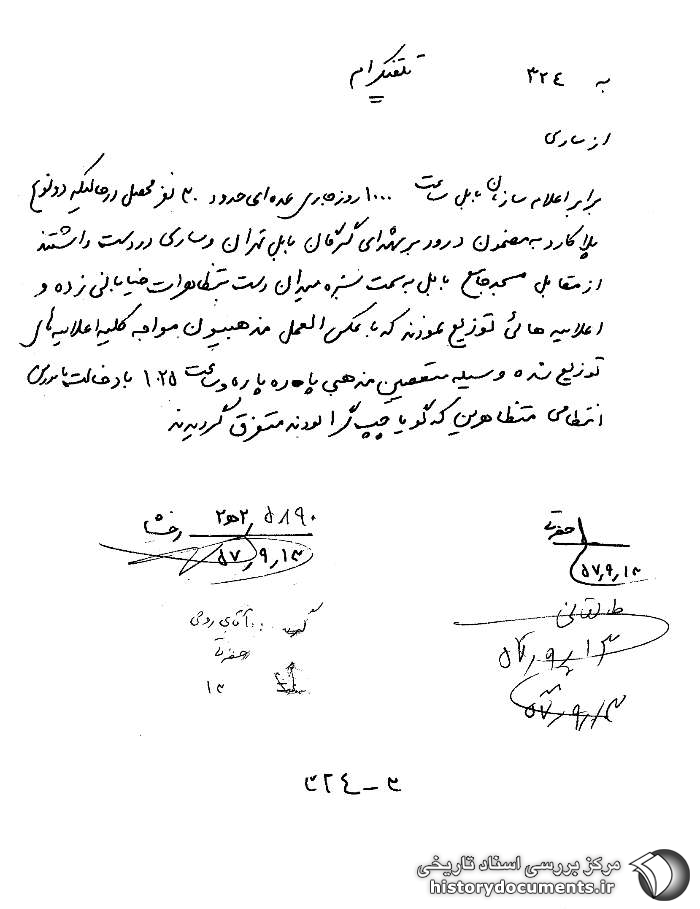 به ۳۲۴ تلفنگرام
از ساری
برابر اعلام سازمان بابل ساعت ۱۰۰۰ روز جاری عده‌ای حدود ۳۰ نفر محصل در حالیکه دو نوع
پلاکارد به مضمون درود بر شهدای گرگان بابل تهران و ساری در دست داشتند
از مقابل مسجد جامع بابل به سمت سبزه میدان دست بتظاهرات خیابانی زده و
اعلامیه هائی توزیع نمودند که با عکس العمل مذهبیون مواجه کلیه اعلامیه‌های
توزیع شده وسیله متعصبین مذهبی پاره پاره و ساعت ۱۰۲۵ با دخالت مامورین
انتظامی متظاهرین که گویا چپ گرا بودند متفرق گردیدند
۵۸۹۰ / ۲ ﻫ ۲
رخشا
۵۷٫۹٫۱۳
حضرتی
۵۷٫۹٫۱۳
طالقانی
۵۷٫۹٫۱۳
۵۷٫۹٫۱۳
آقای روحی
حضرتی
۱۳
۳۲۴-۳
مرکز بررسی اسناد تاریخی
historydocuments.ir